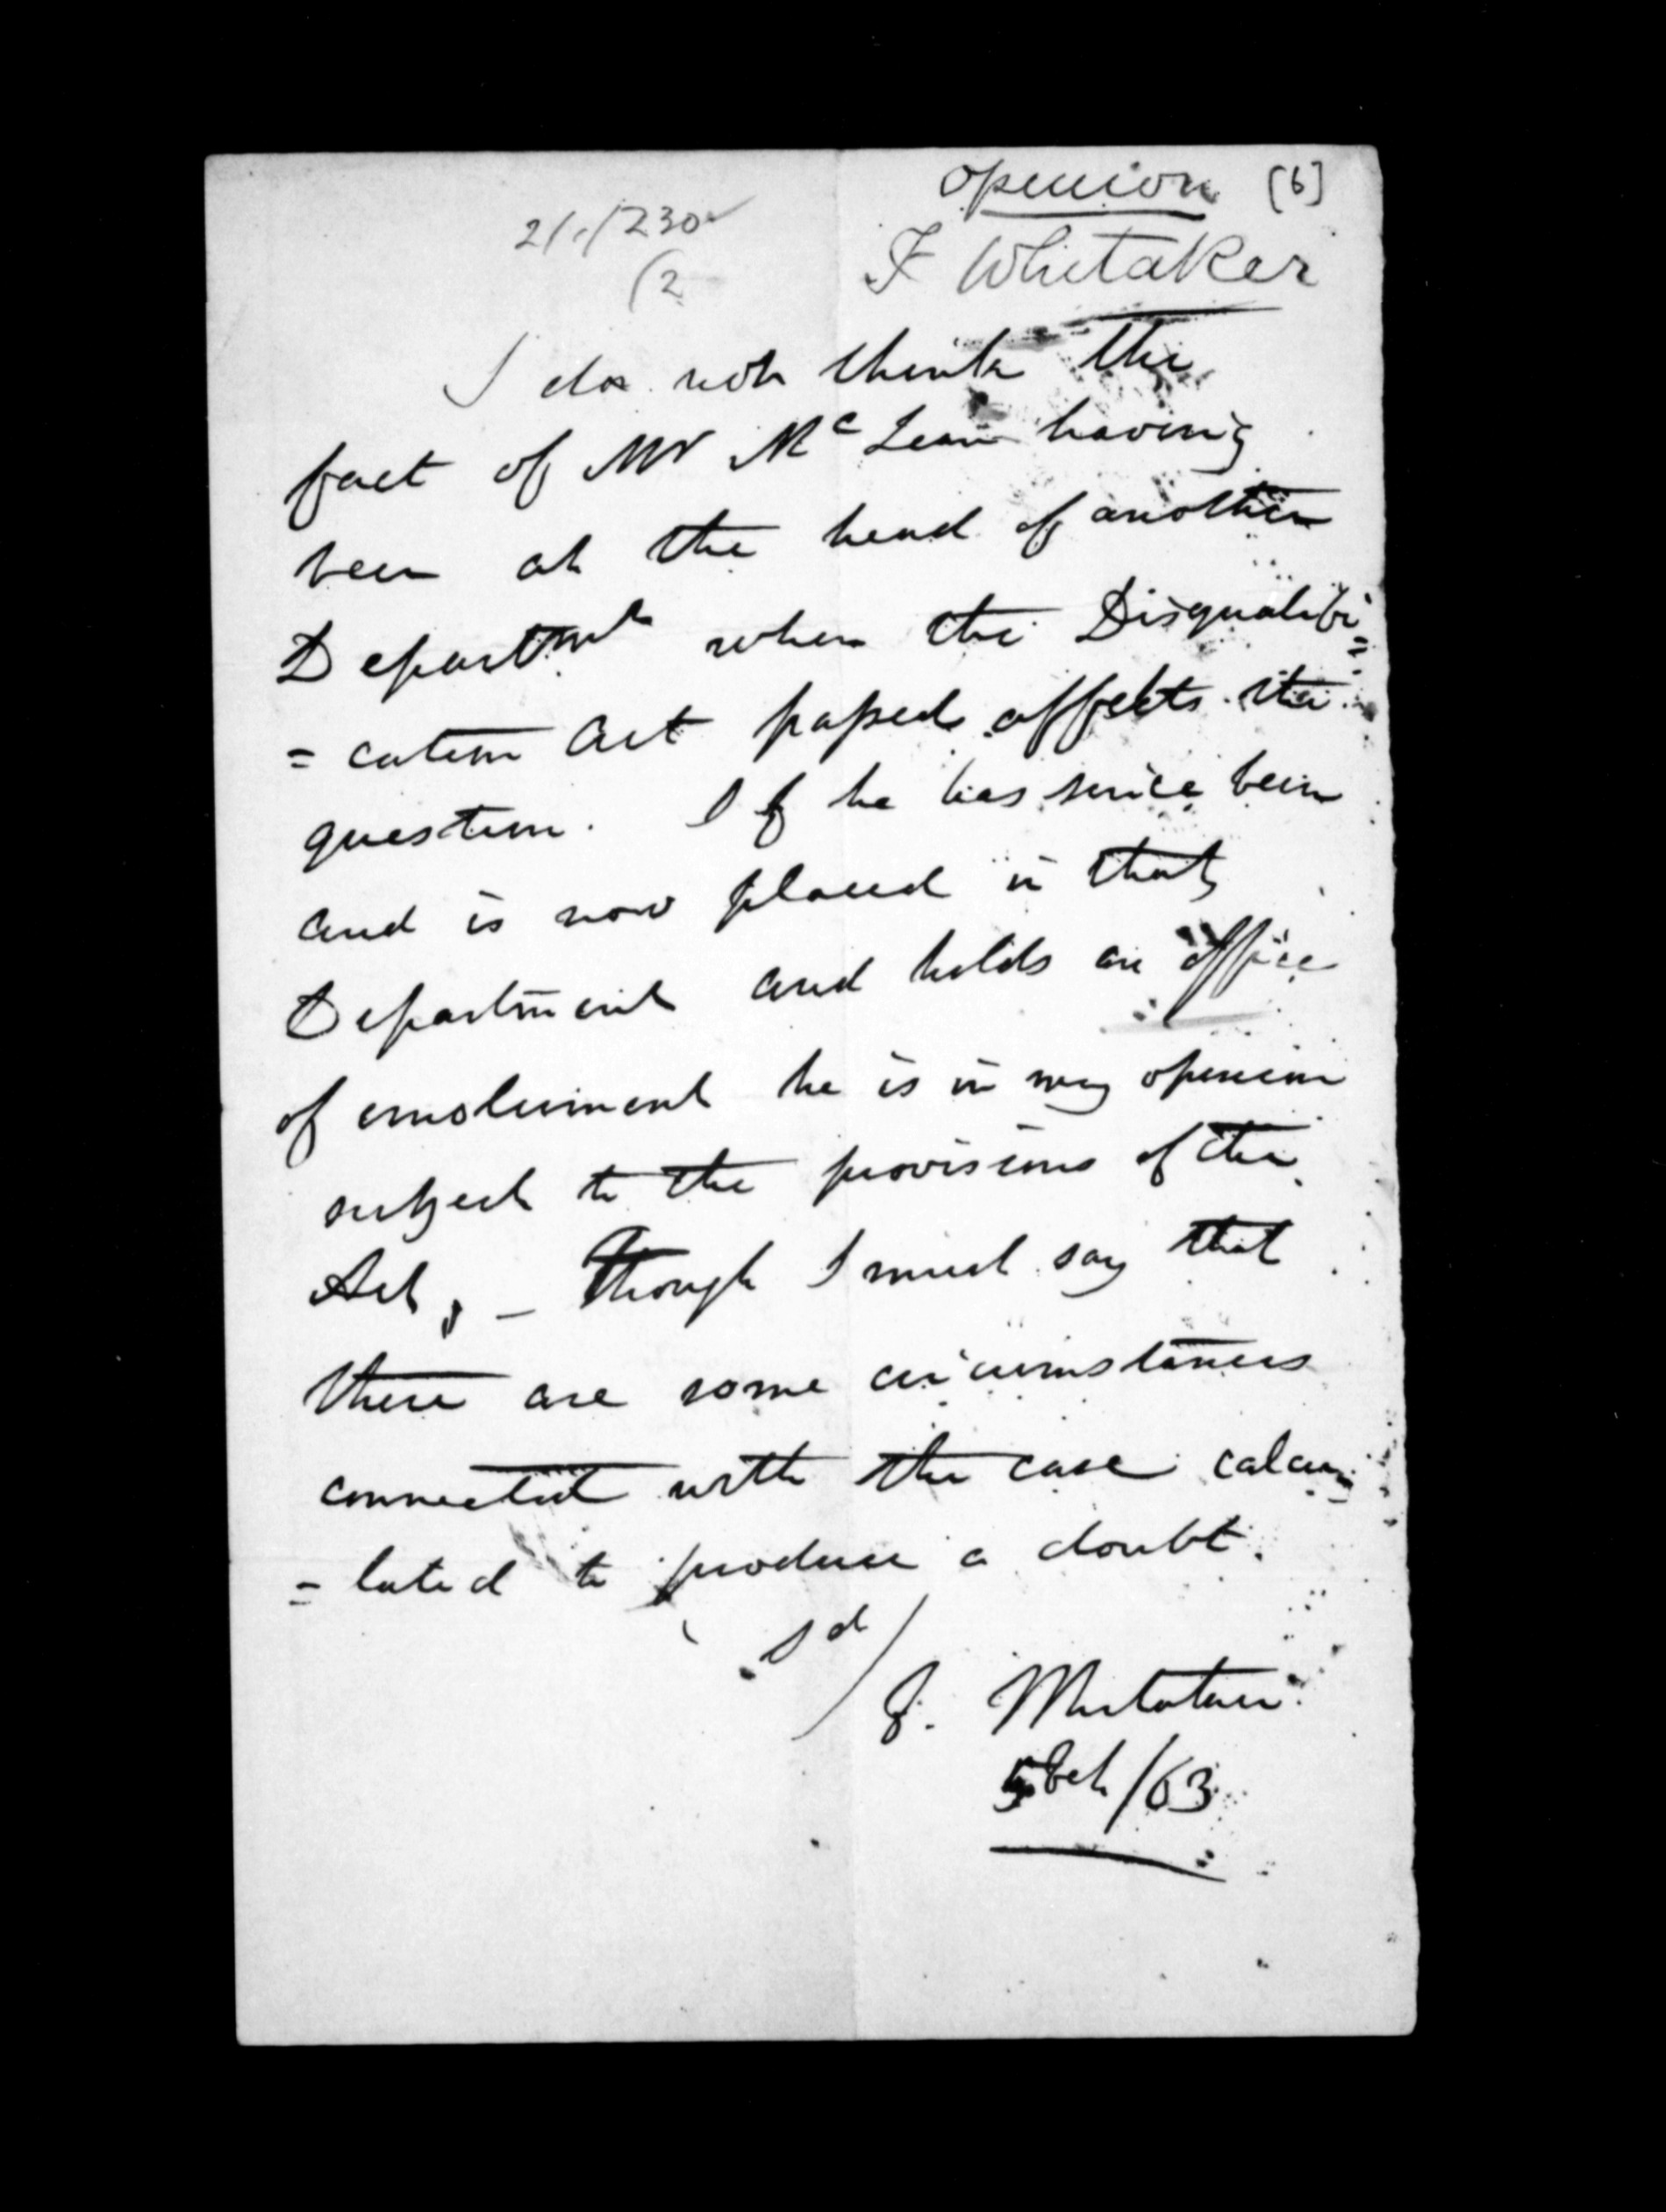 opinion [6]
2/1/230
(2
F Whitaker
I do not think the
fact of Mr McLean having
been at the head of another
Departmt when the Disqualifi=
=cation Act passed affects the
question. If he has since been
and is now placed in that
Department and holds an office
of emolument he is in my opinion
subject to the provisions of the
Act, - Though I must say that
there are some circumstances
connected with the case calcu=
=lated to produce a doubt.
Sd/
F. Whitaker
5 /63